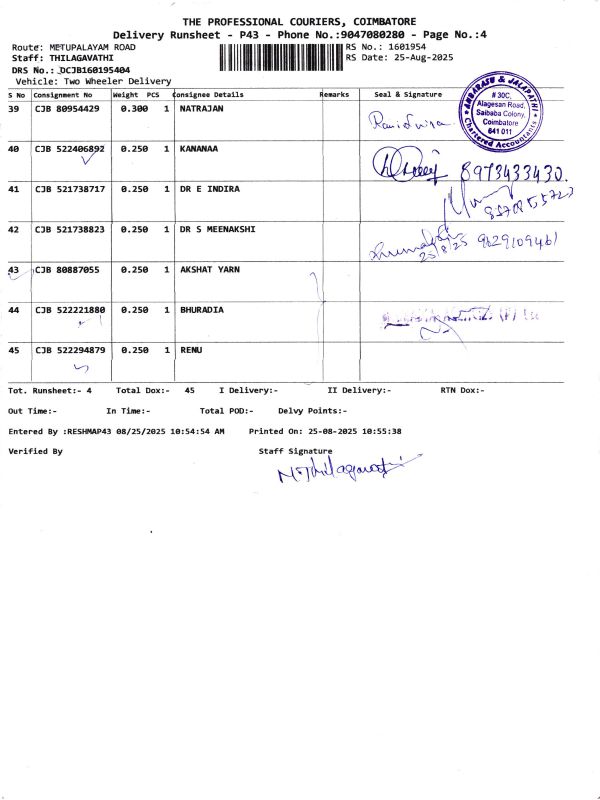 THE PROFESSIONAL COURIERS, COIMBATORE
Delivery Runsheet - P43 - Phone No.:9047080280 - Page No.:4
Route: METUPALAYAM ROAD RS No.: 1601954
Staff: THILAGAVATHI RS Date: 25-Aug-2025
DRS No.: DCJB160195404
Vehicle: Two Wheeler Delivery
S No Consignment No Weight PCS Consignee Details Remarks Seal & Signature
39 CJB 80954429 0.300 1 NATRAJAN
AMBARASU & JALAPATHI
# 30C,
Alagesan Road,
Saibaba Colony,
Coimbatore
641 011
Chartered Accountants
40 CJB 522406892 0.250 1 KANANAA
8973433430.
41 CJB 521738717 0.250 1 DR E INDIRA
42 CJB 521738823 0.250 1 DR S MEENAKSHI
25/8/25 9629109461
43 CJB 80887055 0.250 1 AKSHAT YARN
44 CJB 522221880 0.250 1 BHURADIA
45 CJB 522294879 0.250 1 RENU
Tot. Runsheet:- 4 Total Dox:- 45 I Delivery:- II Delivery:- RTN Dox:-
Out Time:- In Time:- Total POD:- Delvy Points:-
Entered By :RESHMAP43 08/25/2025 10:54:54 AM Printed On: 25-08-2025 10:55:38
Verified By Staff Signature